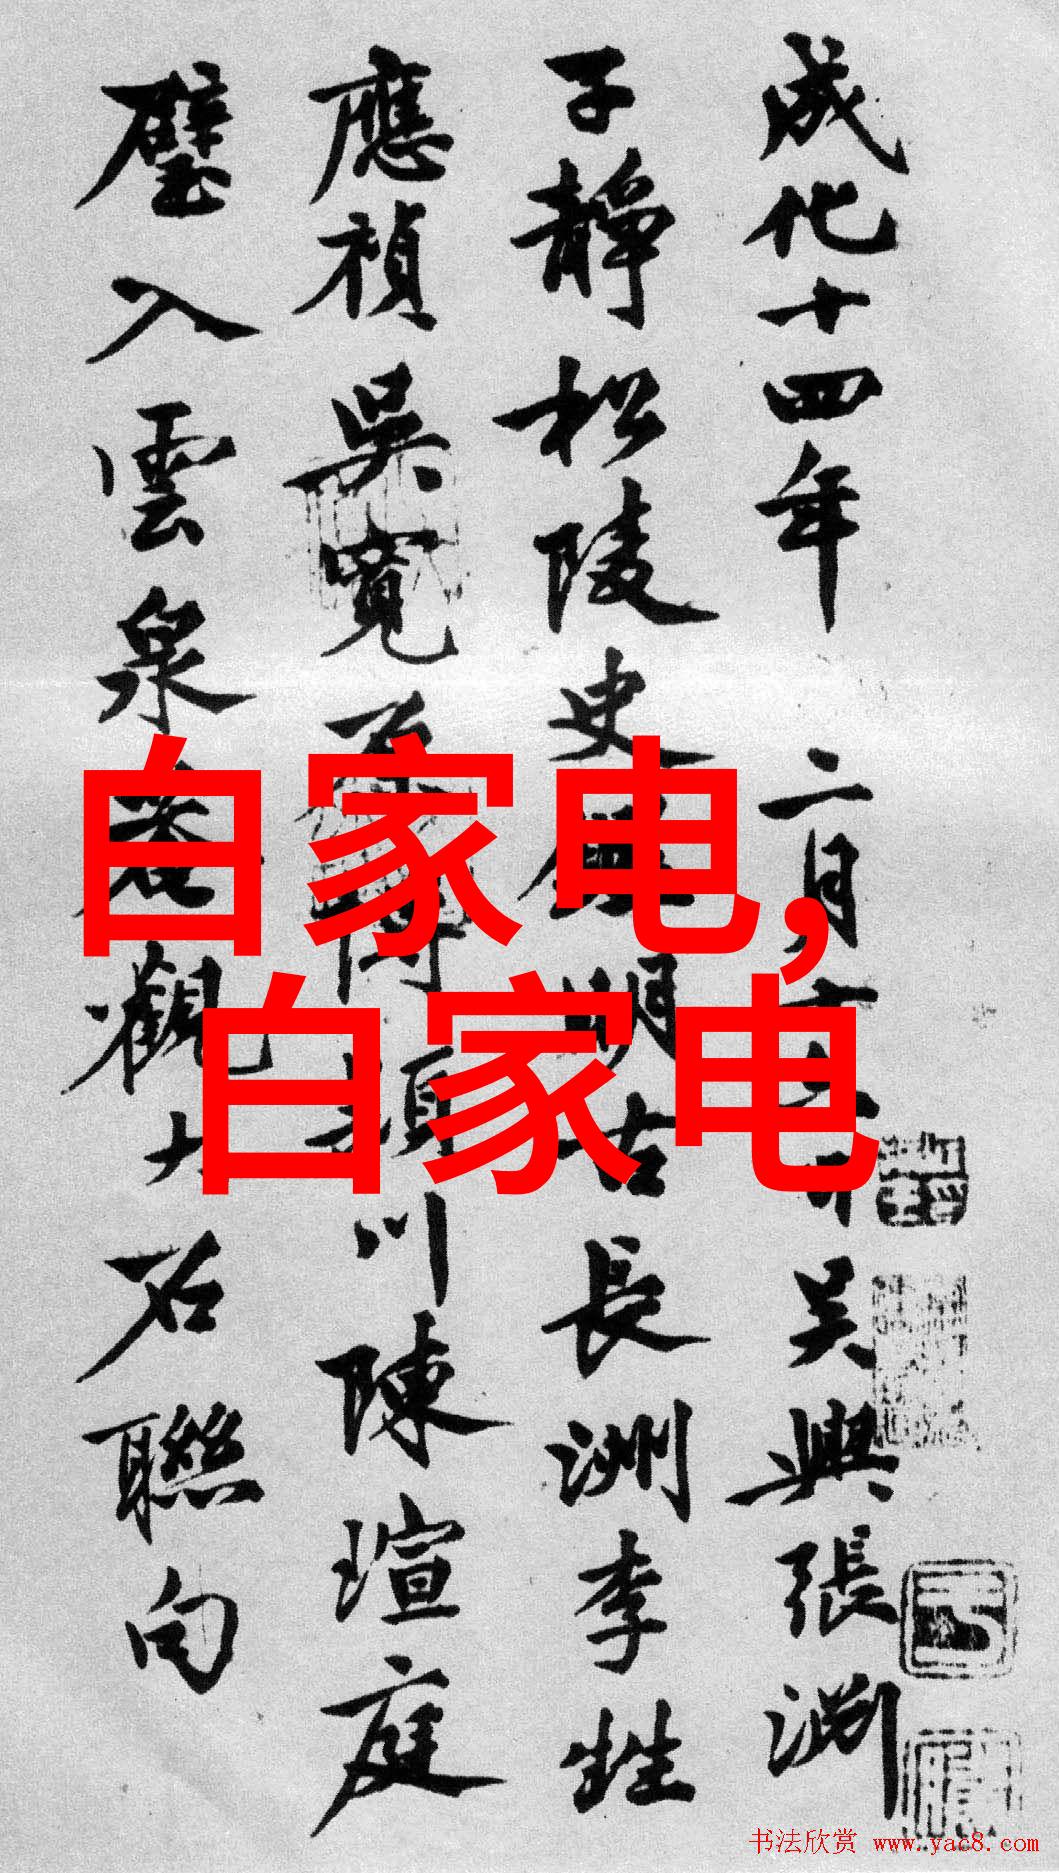 成化十四年二月吴興張渊
子靜松陵史明古長洲李甡
應禎吴寬川陳瑄庭
璧入雲泉菴觀大石聯句
自家电，
白家电
书法欣赏 www.yac8.com